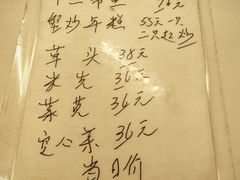 蟹炒年糕 55元一只
二只起炒
草头 38元
米苋 36元
菜苋 36元
空心菜 36元
当日价